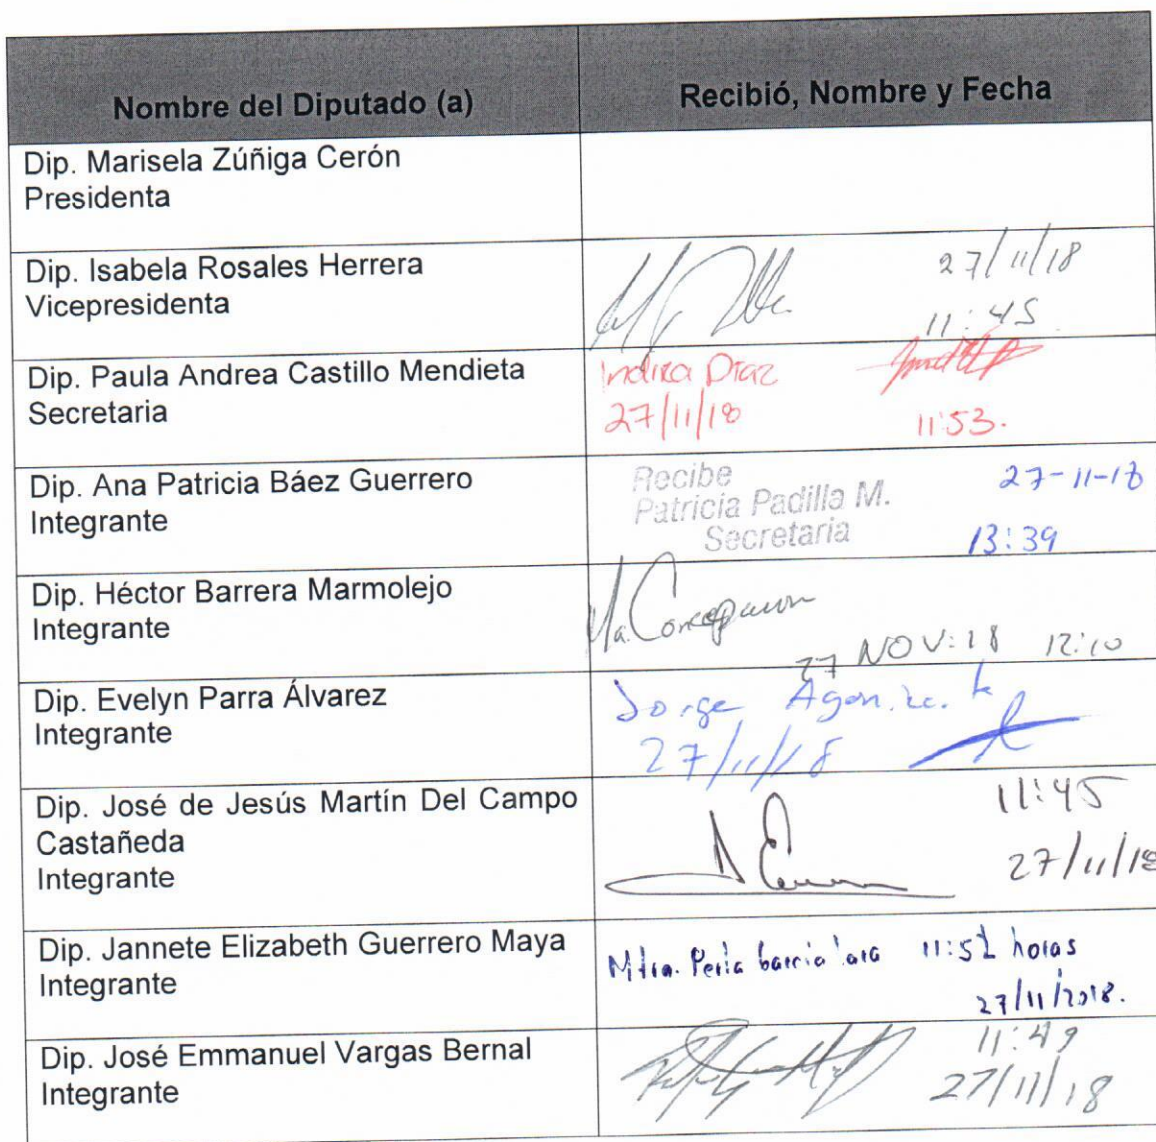 Nombre del Diputado (a)
Recibió, Nombre y Fecha
Dip. Marisela Zúñiga Cerón
Presidenta
Dip. Isabela Rosales Herrera
Vicepresidenta
27/11/18
11:45
Dip. Paula Andrea Castillo Mendieta
Secretaria
Indira Díaz
27/11/18
11:53.
Dip. Ana Patricia Báez Guerrero
Integrante
Recibe
Patricia Padilla M.
Secretaria
27-11-18
13:39
Dip. Héctor Barrera Marmolejo
Integrante
Ma. Concepcion
27 NOV:18 12:10
Dip. Evelyn Parra Álvarez
Integrante
Jorge
27/11/18
Dip. José de Jesús Martín Del Campo
Castañeda
Integrante
11:45
27/11/18
Dip. Jannete Elizabeth Guerrero Maya
Integrante
Mtra. Perla Garcia Lara 11:52 horas
27/11/2018.
Dip. José Emmanuel Vargas Bernal
Integrante
11:49
27/11/18